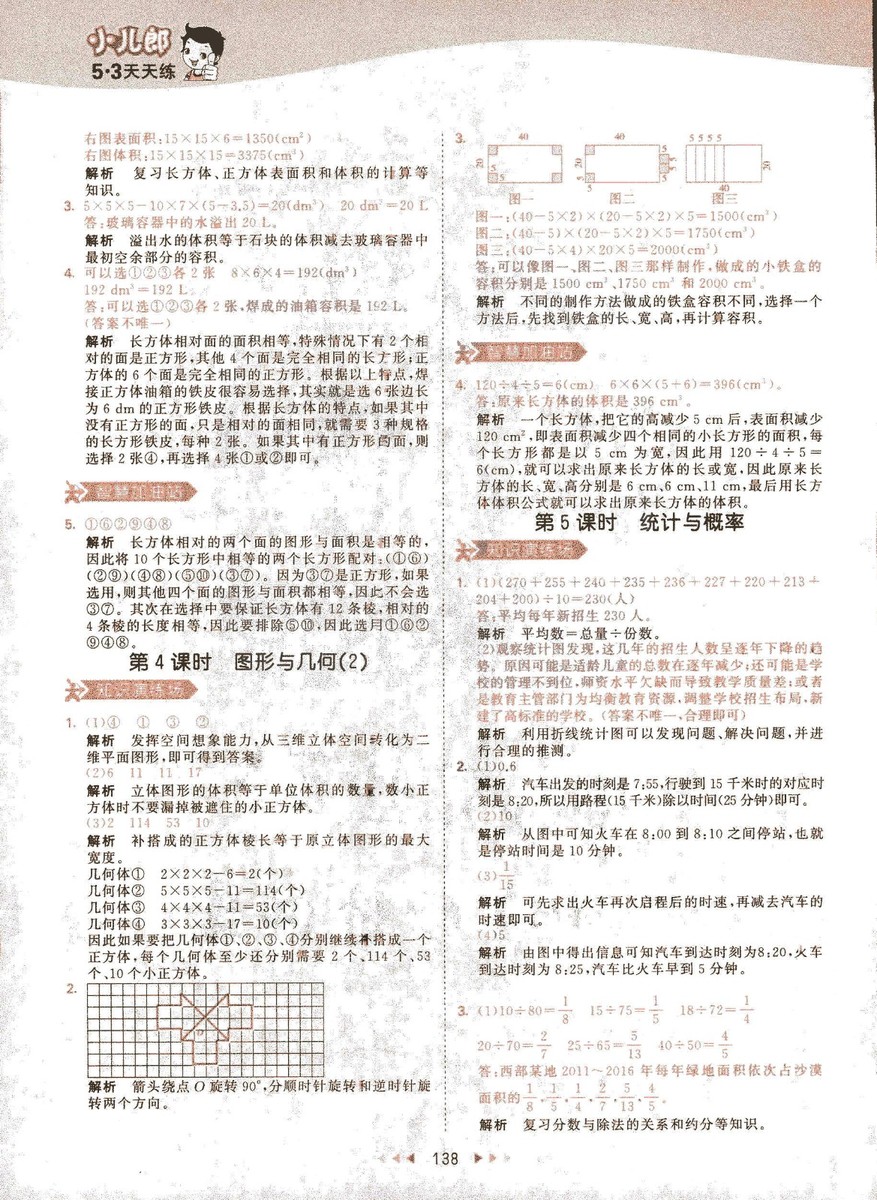 小儿郎
5·3天天练
右图表面积:15×15×6=1350(cm²)
右图体积:15×15×15=3375(cm³)
解析 复习长方体、正方体表面积和体积的计算等
知识。
3. 5×5×5-10×7×(5-3.5)=20(dm³) 20 dm³=20 L
答:玻璃容器中的水溢出 20 L。
解析 溢出水的体积等于石块的体积减去玻璃容器中
最初空余部分的容积。
4. 可以选①②③各 2 张 8×6×4=192(dm³)
192 dm³=192 L
答:可以选①②③各 2 张,焊成的油箱容积是 192 L。
(答案不唯一)
解析 长方体相对面的面积相等,特殊情况下有 2 个相
对的面是正方形,其他 4 个面是完全相同的长方形;正
方体的 6 个面是完全相同的正方形。根据以上特点,焊
接正方体油箱的铁皮很容易选择,其实就是选 6 张边长
为 6 dm 的正方形铁皮。根据长方体的特点,如果其中
没有正方形的面,只是相对的面相同,就需要 3 种规格
的长方形铁皮,每种 2 张。如果其中有正方形的面,则
选择 2 张④,再选择 4 张①或②即可。
智慧加油站
5. ①⑥②⑨④⑧
解析 长方体相对的两个面的图形与面积是相等的,
因此将 10 个长方形中相等的两个长方形配对:(①⑥)
(②⑨)(④⑧)(⑤⑩)(③⑦)。因为③⑦是正方形,如果
选用,则其他四个面的图形与面积都相等,因此不会选
③⑦。其次在选择中要保证长方体有 12 条棱,相对的
4 条棱的长度相等,因此要排除⑤⑩,因此选用①⑥②
⑨④⑧。
第 4 课时 图形与几何(2)
知识演练场
1. (1)④ ① ③ ②
解析 发挥空间想象能力,从三维立体空间转化为二
维平面图形,即可得到答案。
(2)6 11 11 17
解析 立体图形的体积等于单位体积的数量,数小正
方体时不要漏掉被遮住的小正方体。
(3)2 114 53 10
解析 补搭成的正方体棱长等于原立体图形的最大
宽度。
几何体① 2×2×2-6=2(个)
几何体② 5×5×5-11=114(个)
几何体③ 4×4×4-11=53(个)
几何体④ 3×3×3-17=10(个)
因此如果要把几何体①、②、③、④分别继续补搭成一个
正方体,每个几何体至少还分别需要 2 个、114 个、53
个、10 个小正方体。
2.
O
解析 箭头绕点 O 旋转 90°,分顺时针旋转和逆时针旋
转两个方向。
3.
40 40 5 5 5 5
20 5 5 20 5 5 5 20
40
图一 图二 图三
图一:(40-5×2)×(20-5×2)×5=1500(cm³)
图二:(40-5)×(20-5×2)×5=1750(cm³)
图三:(40-5×4)×20×5=2000(cm³)
答:可以像图一、图二、图三那样制作,做成的小铁盒的
容积分别是 1500 cm³、1750 cm³ 和 2000 cm³。
解析 不同的制作方法做成的铁盒容积不同,选择一个
方法后,先找到铁盒的长、宽、高,再计算容积。
智慧加油站
4. 120÷4÷5=6(cm) 6×6×(5+6)=396(cm³)。
答:原来长方体的体积是 396 cm³。
解析 一个长方体,把它的高减少 5 cm 后,表面积减少
120 cm²,即表面积减少四个相同的小长方形的面积,每
个长方形都是以 5 cm 为宽,因此用 120÷4÷5=
6(cm),就可以求出原来长方体的长或宽,因此原来长
方体的长、宽、高分别是 6 cm、6 cm、11 cm,最后用长方
体体积公式就可以求出原来长方体的体积。
第 5 课时 统计与概率
知识演练场
1. (1)(270+255+240+235+236+227+220+213+
204+200)÷10=230(人)
答:平均每年新招生 230 人。
解析 平均数=总量÷份数。
(2)观察统计图发现,这几年的招生人数呈逐年下降的趋
势。原因可能是适龄儿童的总数在逐年减少;还可能是学
校的管理不到位,师资水平欠缺而导致教学质量差;或者
是教育主管部门为均衡教育资源,调整学校招生布局,新
建了高标准的学校。(答案不唯一,合理即可)
解析 利用折线统计图可以发现问题、解决问题,并进
行合理的推测。
2. (1)0.6
解析 汽车出发的时刻是 7:55,行驶到 15 千米时的对应时
刻是 8:20,所以用路程(15 千米)除以时间(25 分钟)即可。
(2)10
解析 从图中可知火车在 8:00 到 8:10 之间停站,也就
是停站时间是 10 分钟。
(3)1/15
解析 可先求出火车再次启程后的时速,再减去汽车的
时速即可。
(4)5
解析 由图中得出信息可知汽车到达时刻为8:20,火车
到达时刻为 8:25,汽车比火车早到 5 分钟。
3. (1)10÷80=1/8 15÷75=1/5 18÷72=1/4
20÷70=2/7 25÷65=5/13 40÷50=4/5
答:西部某地 2011~2016 年每年绿地面积依次占沙漠
面积的1/8、1/5、1/4、2/7、5/13、4/5。
解析 复习分数与除法的关系和约分等知识。
138